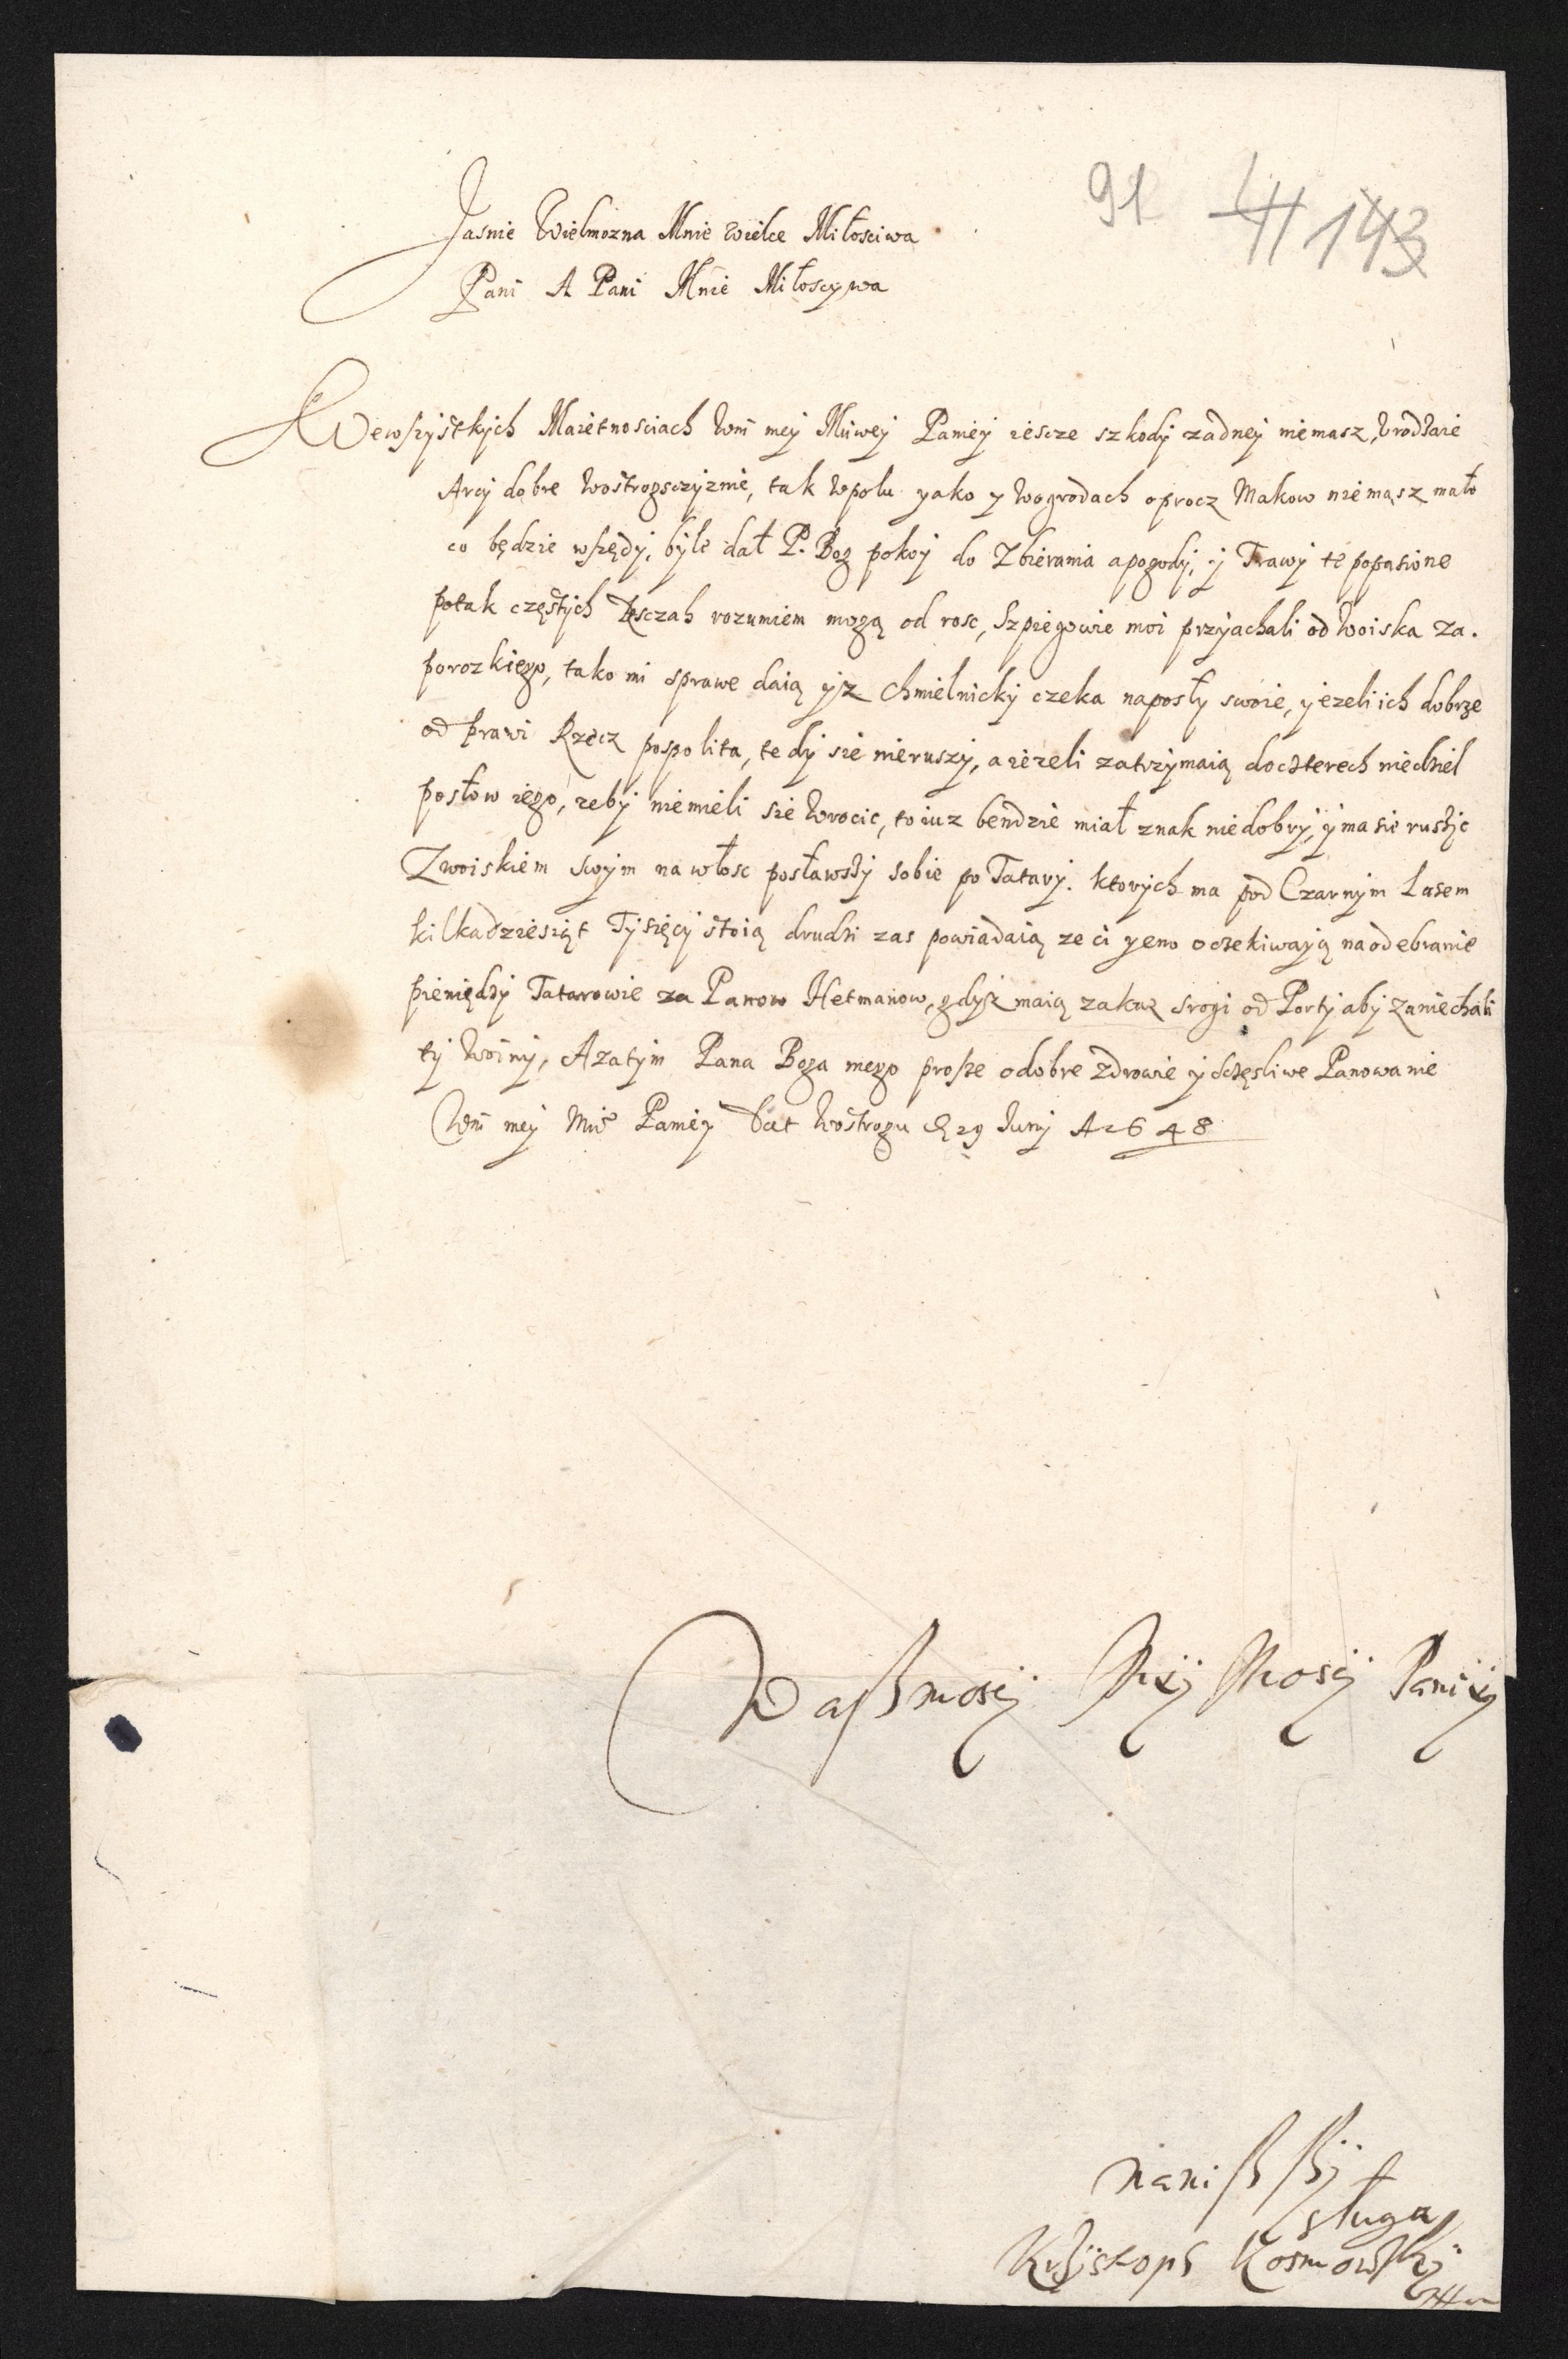 91 143
Jasnie Wielmozna Mnie Wielce Miłosciwa
Pani A Pani Mnie Miłoscywa
Wewszystkych Maietnosciach Wm mey Miłwey Paniey iescze szkody zadney niemasz, Vrodzaie
Arcy dobre Wostrogsczyznie, tak wpolu yako y Wogrodach oprocz Makow niemasz mało
co będzie wszędy, byłe dał P. Bog pokoy do Zbierania apogody, y Trawy te popasione
potak częstych Desczah rozumiem mogą od rosc, Szpiegowie moi przyachali od Woiska Za.
porozkiego, tako mi sprawe daią ysz Chmielnicky czeka naposły swoie, y iezeli ich dobrze
od prawi Rzecz pospolita, tedy sie nieruszy, a iezeli zatrzymaią doczterech niedziel
posłow iego, zeby niemieli sie Wrocic, to iuz bendzie miał znak niedobry, y ma sie ruszyc
Zwoiskiem swym na włosc posławszy sobie po Tatary. ktorych ma pod Czarnym Lasem
kilkadziesiąt Tysięcy stoią drudzi zas powiadaią ze ci yeno oczekiwaią naodebranie
pieniędzy Tatarowie za Panow Hetmanow, gdysz maią zakaz srogi od Porty aby zaniechali
ty Woiny, Azatym Pana Boga mego prosze odobre Zdrowie y sczęsliwe Panowanie
Wm mey Mił Paniey Dat Wostrogu D 29 Juny A 1648
Waszmoscy Mey Moscy Paniey
naniszszy
sługa
Krzysztoph Kosmowsky